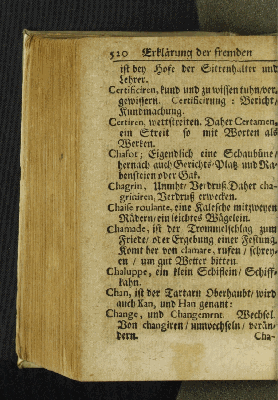 520 Erklärung der fremden
ist bey Hofe der Sittenhalter und
Lehrer.
Certificiren, kund und zu wissen tuhn/ver-
gewissern. Certificirung: Bericht/
Kundmachung.
Certiren, wettstreiten. Daher Certamen,
ein Streit so mit Worten als
Werken.
Chafot; Eigendlich eine Schaubüne/
hernach auch Gerichts-Platz und Ra-
bensteien oder Gak.
Chagrin, Unmuht/ Verdruß. Daher cha-
griniren, Verdruß erwecken.
Chaise roulante, eine Kalesche mit zweyen
Rädern/ ein leichtes Wägelein.
Chamade, ist der Trommelschlag zum
Friede/ oder Ergebung einer Festung.
Komt her von clamare, rufen/ schrey-
en / um gut Wetter bitten.
Chaluppe, ein klein Schiflein/ Schiff-
kahn.
Chan, ist der Tartarn Oberhaubt/ wird
auch Kan, und Han genant:
Change, und Changement. Wechsel.
Von changiren/ umwechseln/ verän-
dern. Cha-